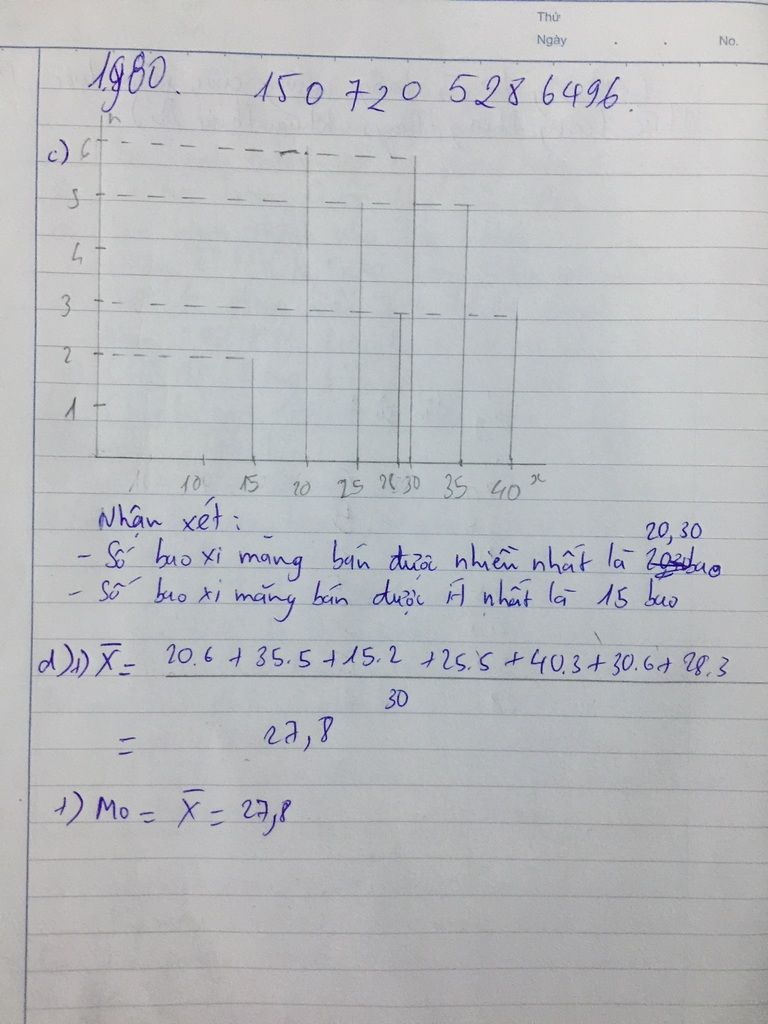 Thứ
Ngày . . No.
1980. 150 720 528 6496.
c) n
6
5
4
3
2
1
10 15 20 25 28 30 35 40 x
Nhận xét:
20, 30
- Số bao xi măng bán được nhiền nhất là bao
- Số bao xi măng bán được ít nhất là 15 bao
d) 1) X̄ = 20.6 + 35.5 + 15.2 + 25.5 + 40.3 + 30.6 + 28.3
30
= 27,8
1) Mo = X̄ = 27,8